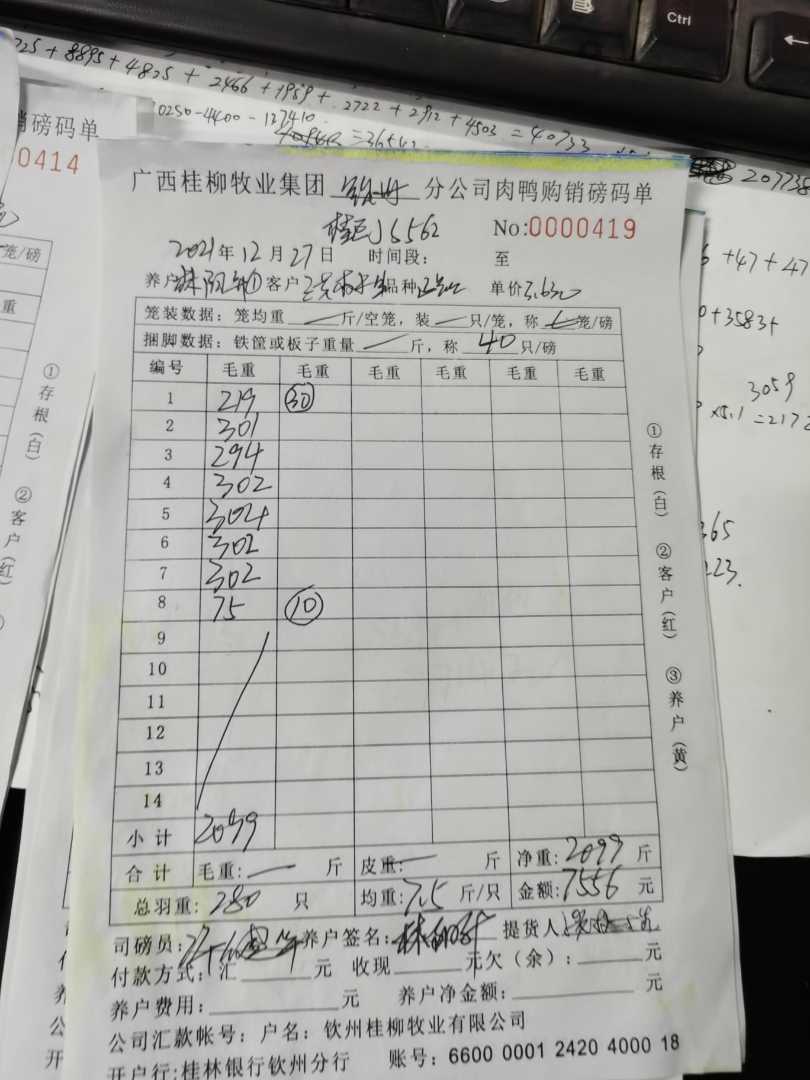 Ctrl
725 + 8895 + 4825 + 2466 + 1959 + 2722 + 2912 + 4503 = 40733
10250-4400-127410
= 36542
207738
销磅码单
0414
笼/磅
重
①存根(白) ②客户(红)
广西桂柳牧业集团 钦州 分公司肉鸭购销磅码单
桂 J5562 No:0000419
2021年12月27日 时间段: 至
养户 林 ① 客户 品种 单价 3.630
笼装数据: 笼均重 — 斤/空笼, 装 — 只/笼, 称 笼/磅
捆脚数据: 铁筐或板子重量 — 斤, 称 40 只/磅
编号 毛重 毛重 毛重 毛重 毛重 毛重
1 219 30
2 301
3 294
4 302
5 304
6 302
7 302
8 75 10
9
10
11
12
13
14
小计 2099
合计 毛重: — 斤 皮重: — 斤 净重: 2099 斤
总羽重: 280 只 均重: 7.5 斤/只 金额: 7556 元
司磅员: 养户签名: 林 提货人
付款方式: 汇 元 收现 元欠(余): 元
养户费用: 元 养户净金额: 元
公司汇款帐号: 户名: 钦州桂柳牧业有限公司
开户行:桂林银行钦州分行 账号: 6600 0001 2420 4000 18
①存根(白) ②客户(红) ③养户(黄)
+47 + 47
+ 3583+
3059
×5.1 = 2172
365
223.